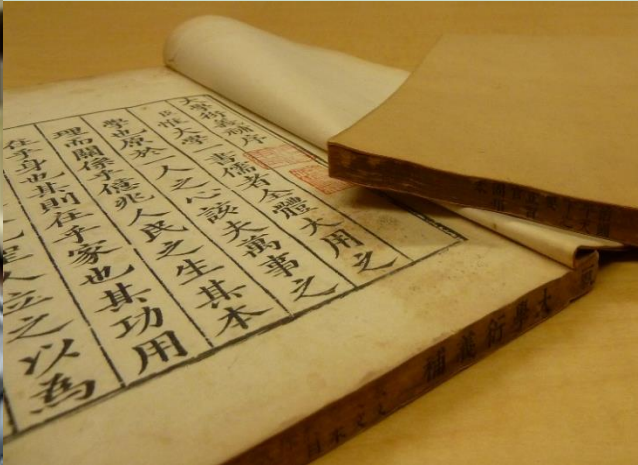 大學衍義補序
臣惟大學一書儒者全體大用之
學也原於一人之心該夫萬事之
理而關係乎億兆人民之生其本
在乎身也其則在乎家也其功用
聖人立之以為
大學衍義補